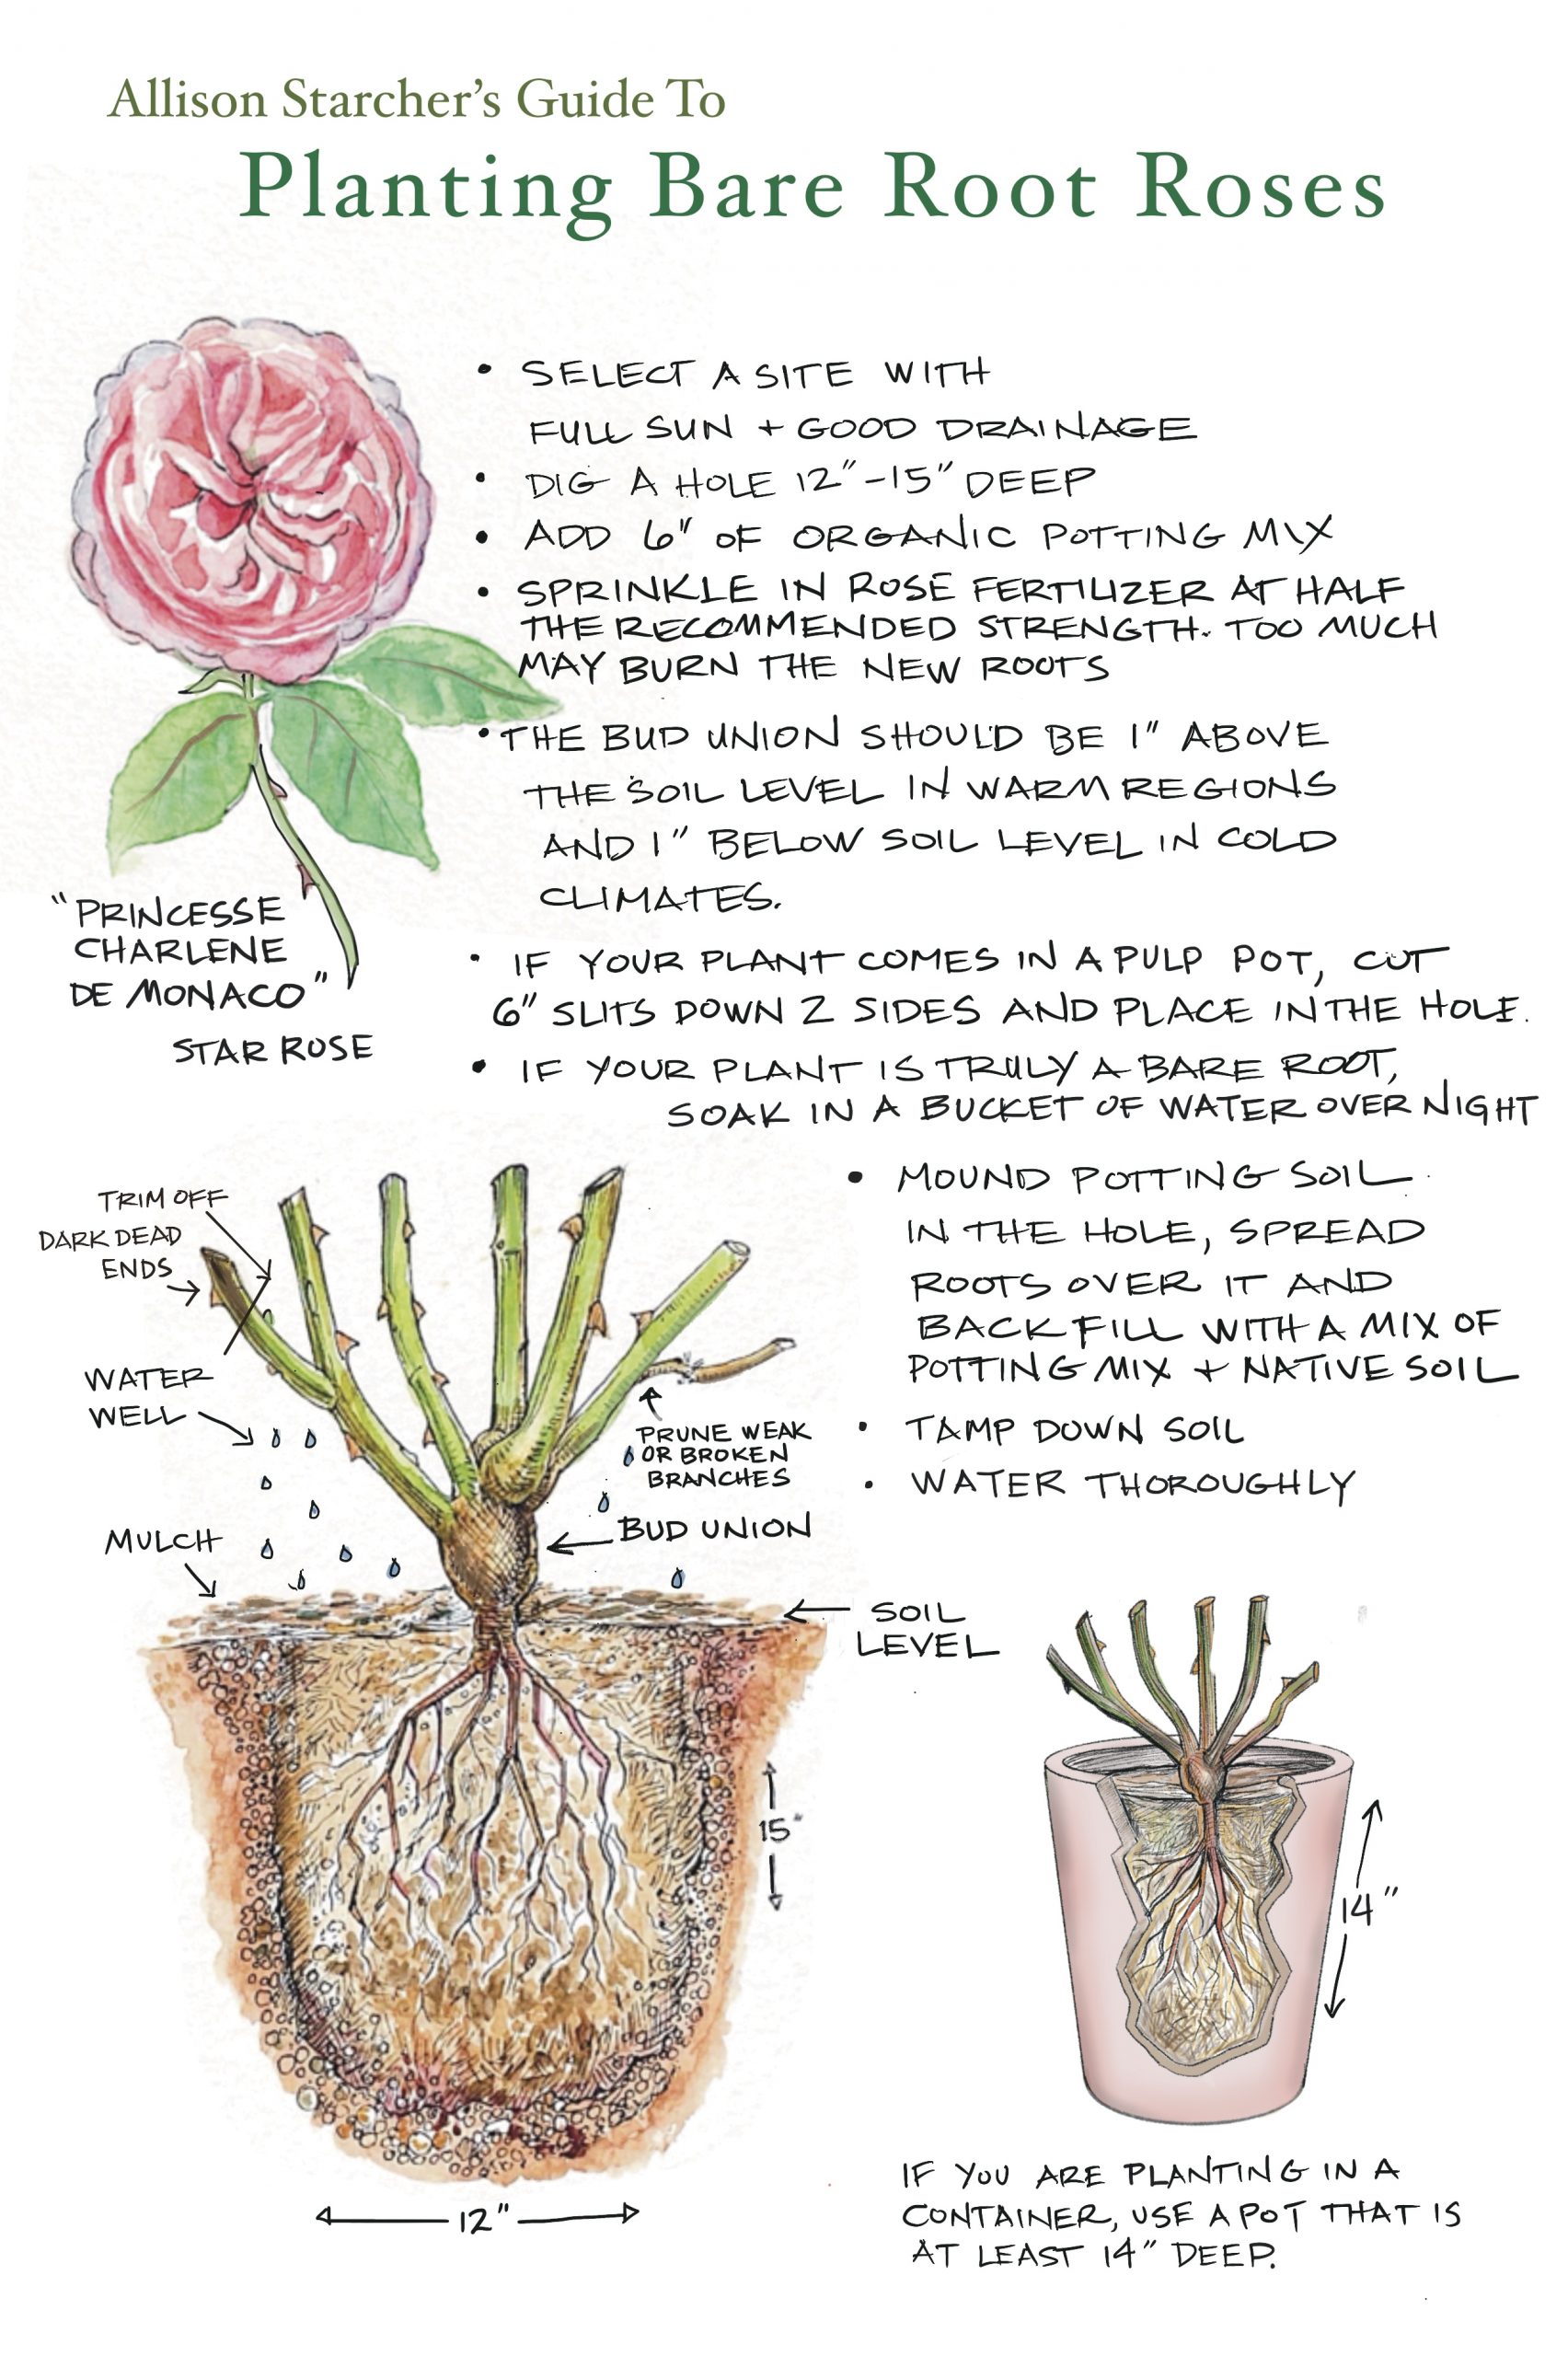 Allison Starcher's Guide To
Planting Bare Root Roses
• SELECT A SITE WITH
FULL SUN + GOOD DRAINAGE
• DIG A HOLE 12"-15" DEEP
• ADD 6" OF ORGANIC POTTING MIX
• SPRINKLE IN ROSE FERTILIZER AT HALF
THE RECOMMENDED STRENGTH. TOO MUCH
MAY BURN THE NEW ROOTS
• THE BUD UNION SHOULD BE 1" ABOVE
THE SOIL LEVEL IN WARM REGIONS
AND 1" BELOW SOIL LEVEL IN COLD
CLIMATES.
"PRINCESSE
CHARLENE
DE MONACO"
STAR ROSE
• IF YOUR PLANT COMES IN A PULP POT, CUT
6" SLITS DOWN 2 SIDES AND PLACE IN THE HOLE.
• IF YOUR PLANT IS TRULY A BARE ROOT,
SOAK IN A BUCKET OF WATER OVER NIGHT
• MOUND POTTING SOIL
IN THE HOLE, SPREAD
ROOTS OVER IT AND
BACK FILL WITH A MIX OF
POTTING MIX + NATIVE SOIL
• TAMP DOWN SOIL
• WATER THOROUGHLY
TRIM OFF
DARK DEAD
ENDS
WATER
WELL
MULCH
PRUNE WEAK
OR BROKEN
BRANCHES
BUD UNION
SOIL
LEVEL
15"
12"
14"
IF YOU ARE PLANTING IN A
CONTAINER, USE A POT THAT IS
AT LEAST 14" DEEP.